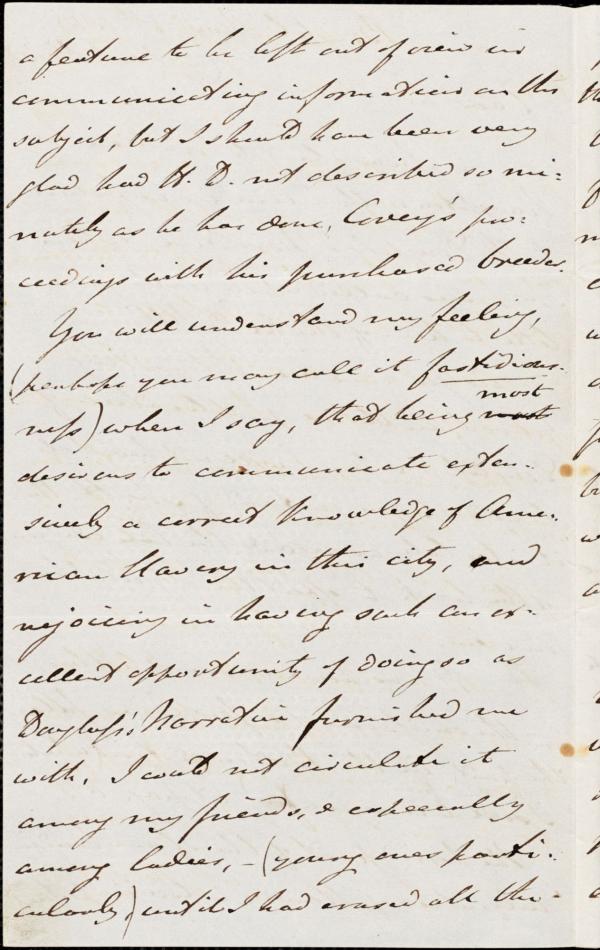 a feature to be left out of view in
communicating information on the
subject, but I should have been very
glad had H. D. not described so mi=
nutely as he has done, Covey's pro=
ceedings with his purchased breeder.
You will understand my feeling,
(perhaps you may call it fastidious-
ness) when I say, that being most
most
desirous to communicate exten-
sively a correct knowledge of Ame-
rican Slavery in this city, and
rejoicing in having such an ex-
cellent opportunity of doing so as
Douglass's Narrative furnished me
with, I could not circulate it
among my friends, & especially
among ladies, - (young ones parti-
cularly,) until I had erased all the